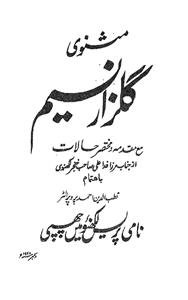 مثنوی
گلزار نسیم
مع مقدمہ و مختصر حالات
از جناب مرزا فدا علی صاحب خنجر لکھنوی
باہتمام
قطب الدین احمد پروپرائٹر
نامی پریس لکھنؤ میں چھپی